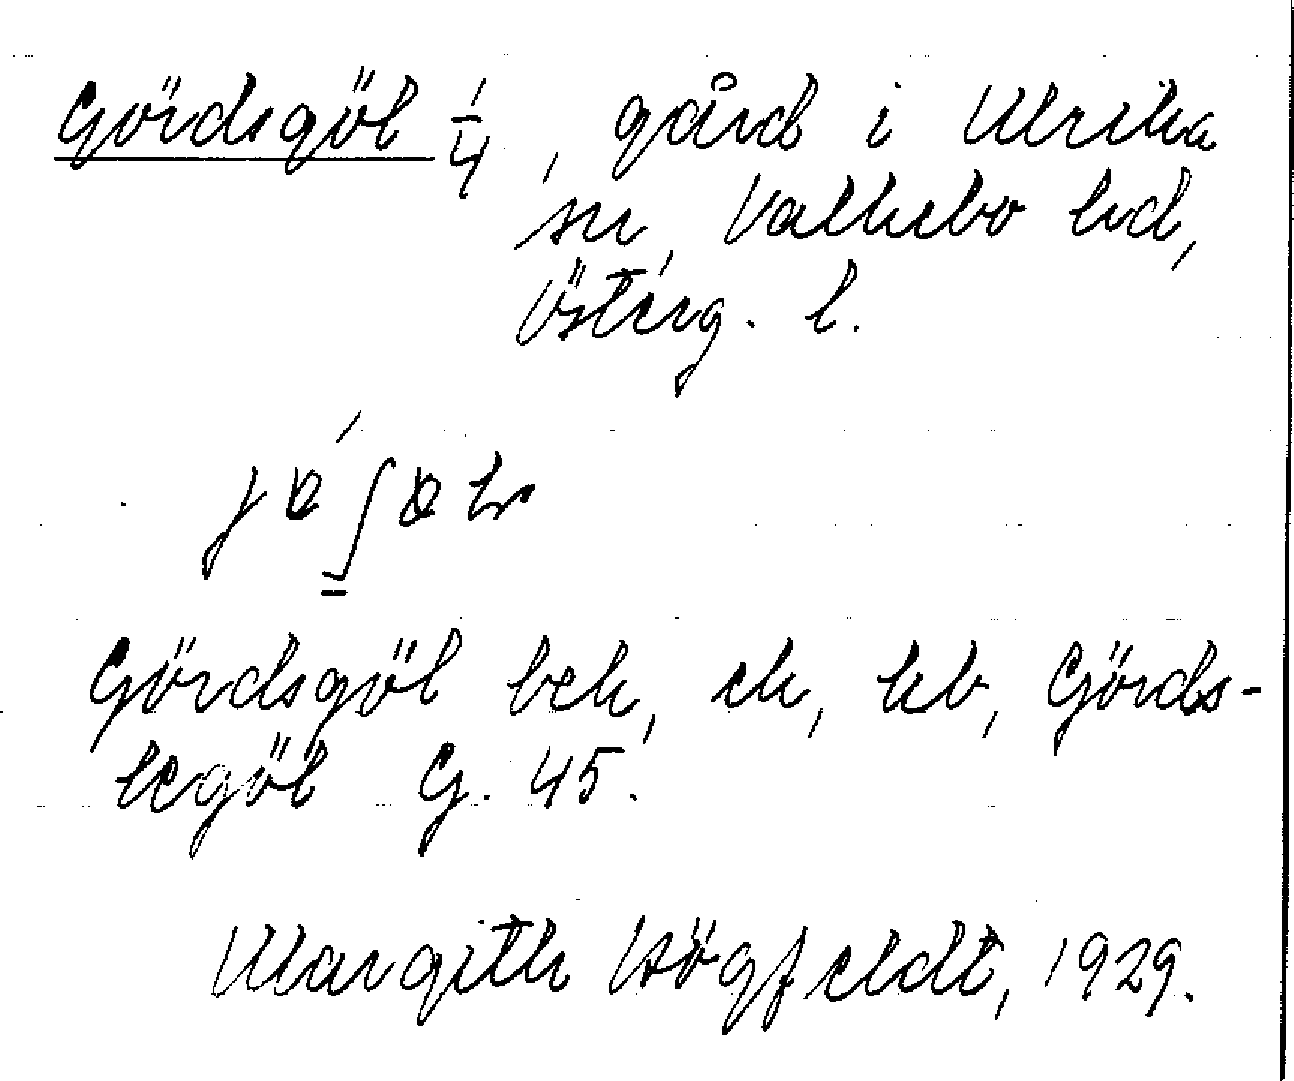 Gördsgöl 1/4, gård i Ulrika
sn, Valkebo hd,
Österg. l.
Gördsgöl bek, ek, kb, Görds-
legöl G. 45.
Margith Högfeldt, 1929.